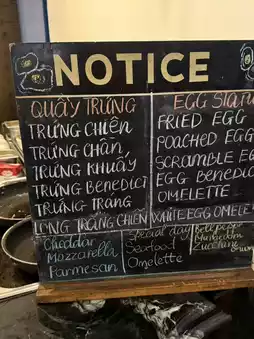 NOTICE
QUẦY TRỨNG
TRỨNG CHIÊN
TRỨNG CHẦN
TRỨNG KHUẤY
TRỨNG BENEDICT
TRỨNG TRÁNG
EGG STATI
FRIED EGG
POACHED EGG
SCRAMBLE EG
EGG BENEDIC
OMELETTE
LÒNG TRẮNG CHIÊN WHITE EGG OMELE
Cheddar
Mozzarella
Parmesan
Special day
Seafood
Omelette
Mushroom
Zucchini